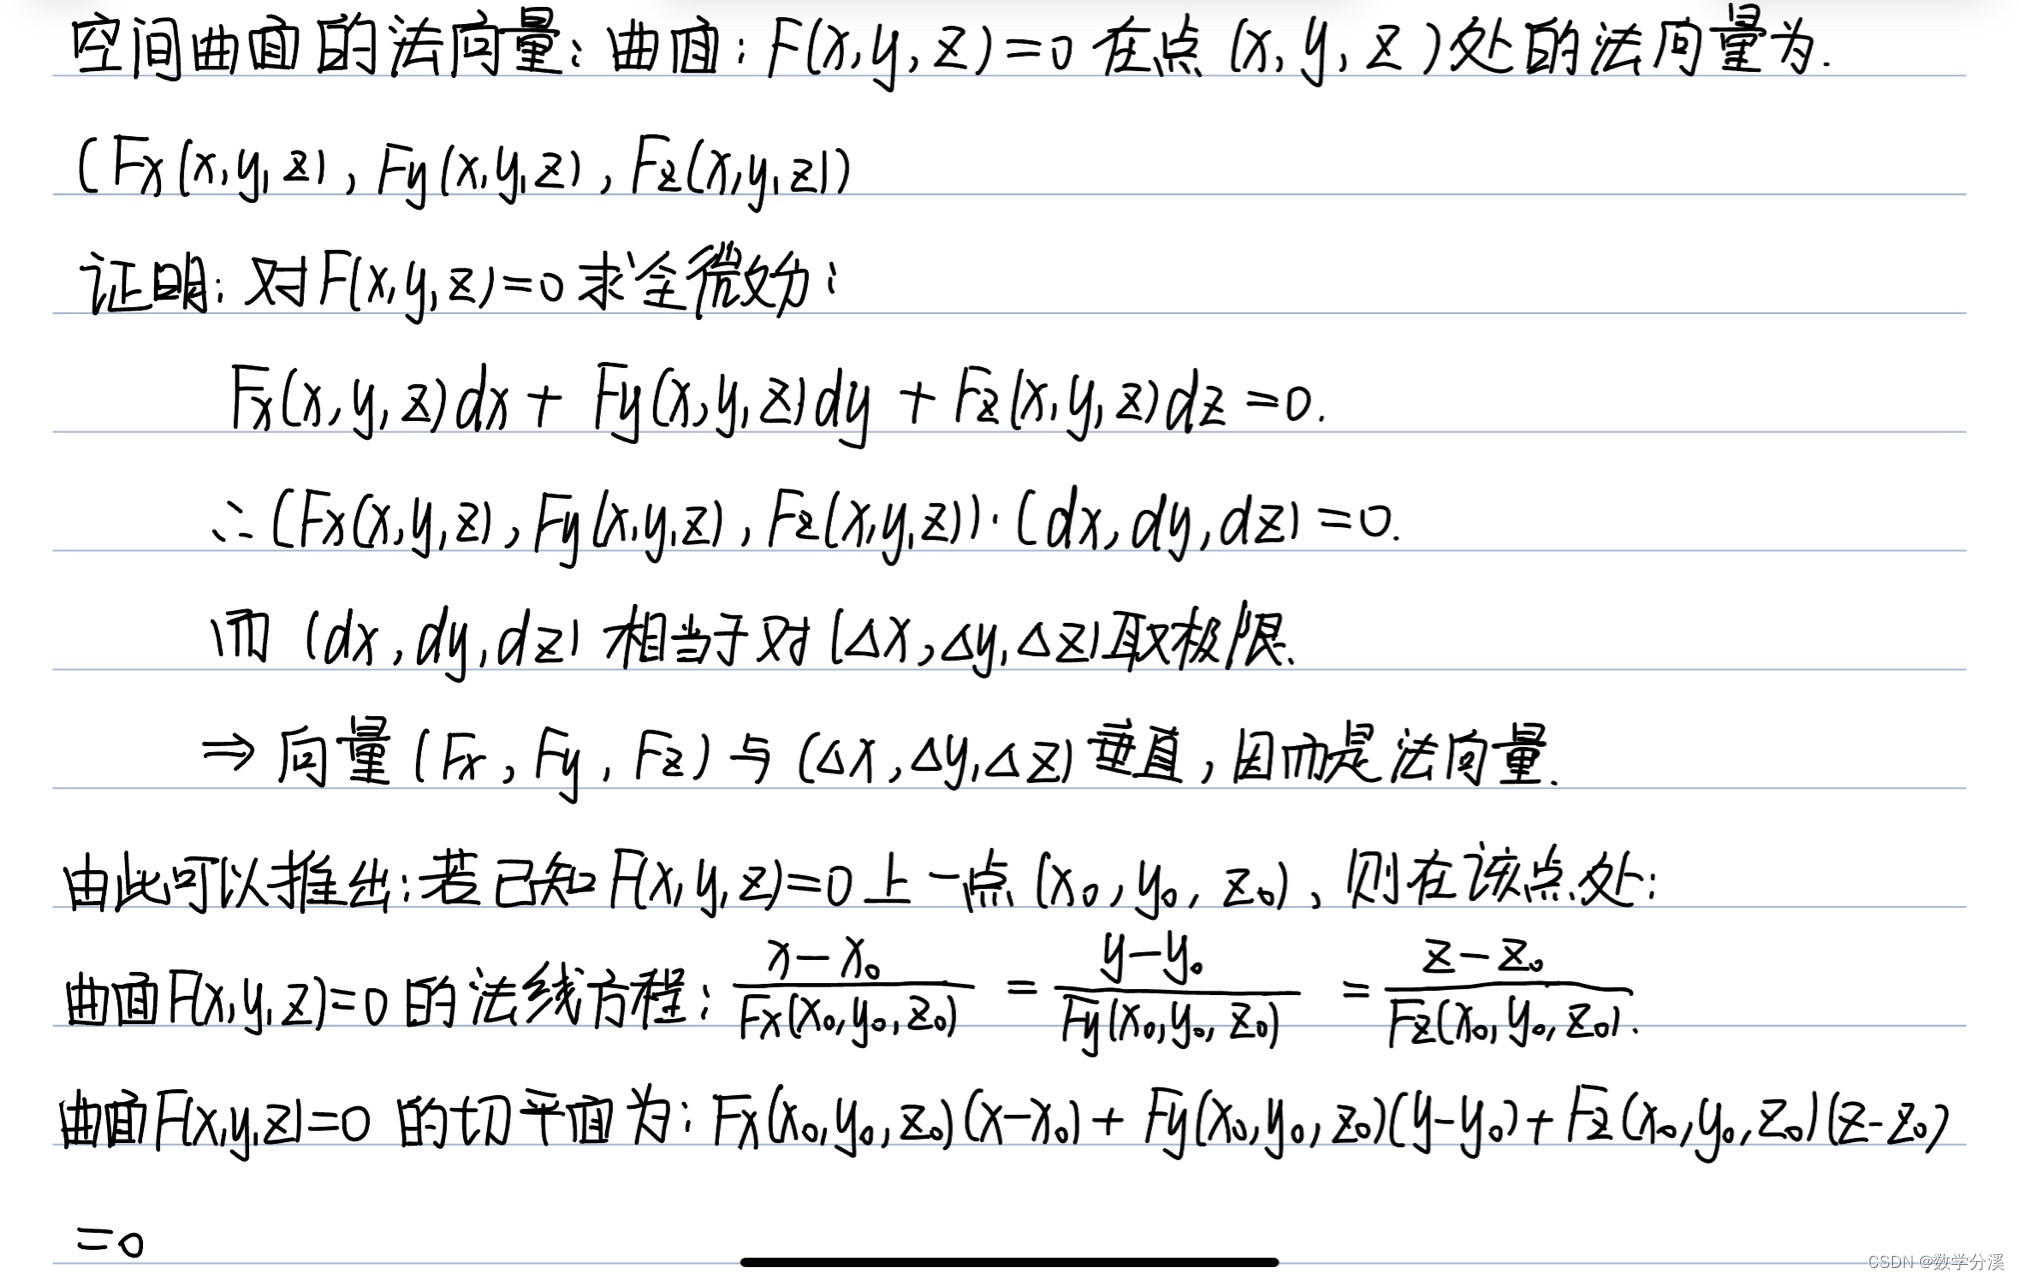 空间曲面的法向量:曲面:F(x,y,z)=0在点(x,y,z)处的法向量为.
(Fx(x,y,z),Fy(x,y,z),Fz(x,y,z))
证明:对F(x,y,z)=0求全微分:
Fx(x,y,z)dx+Fy(x,y,z)dy+Fz(x,y,z)dz=0.
∴(Fx(x,y,z),Fy(x,y,z),Fz(x,y,z))·(dx,dy,dz)=0.
而(dx,dy,dz)相当于对(Δx,Δy,Δz)取极限.
⇒向量(Fx,Fy,Fz)与(Δx,Δy,Δz)垂直,因而是法向量.
由此可以推出:若已知F(x,y,z)=0上一点(x₀,y₀,z₀),则在该点处:
曲面F(x,y,z)=0的法线方程:(x-x₀)/Fx(x₀,y₀,z₀)=(y-y₀)/Fy(x₀,y₀,z₀)=(z-z₀)/Fz(x₀,y₀,z₀).
曲面F(x,y,z)=0的切平面为:Fx(x₀,y₀,z₀)(x-x₀)+Fy(x₀,y₀,z₀)(y-y₀)+Fz(x₀,y₀,z₀)(z-z₀)
=0
CSDN @数学分溪